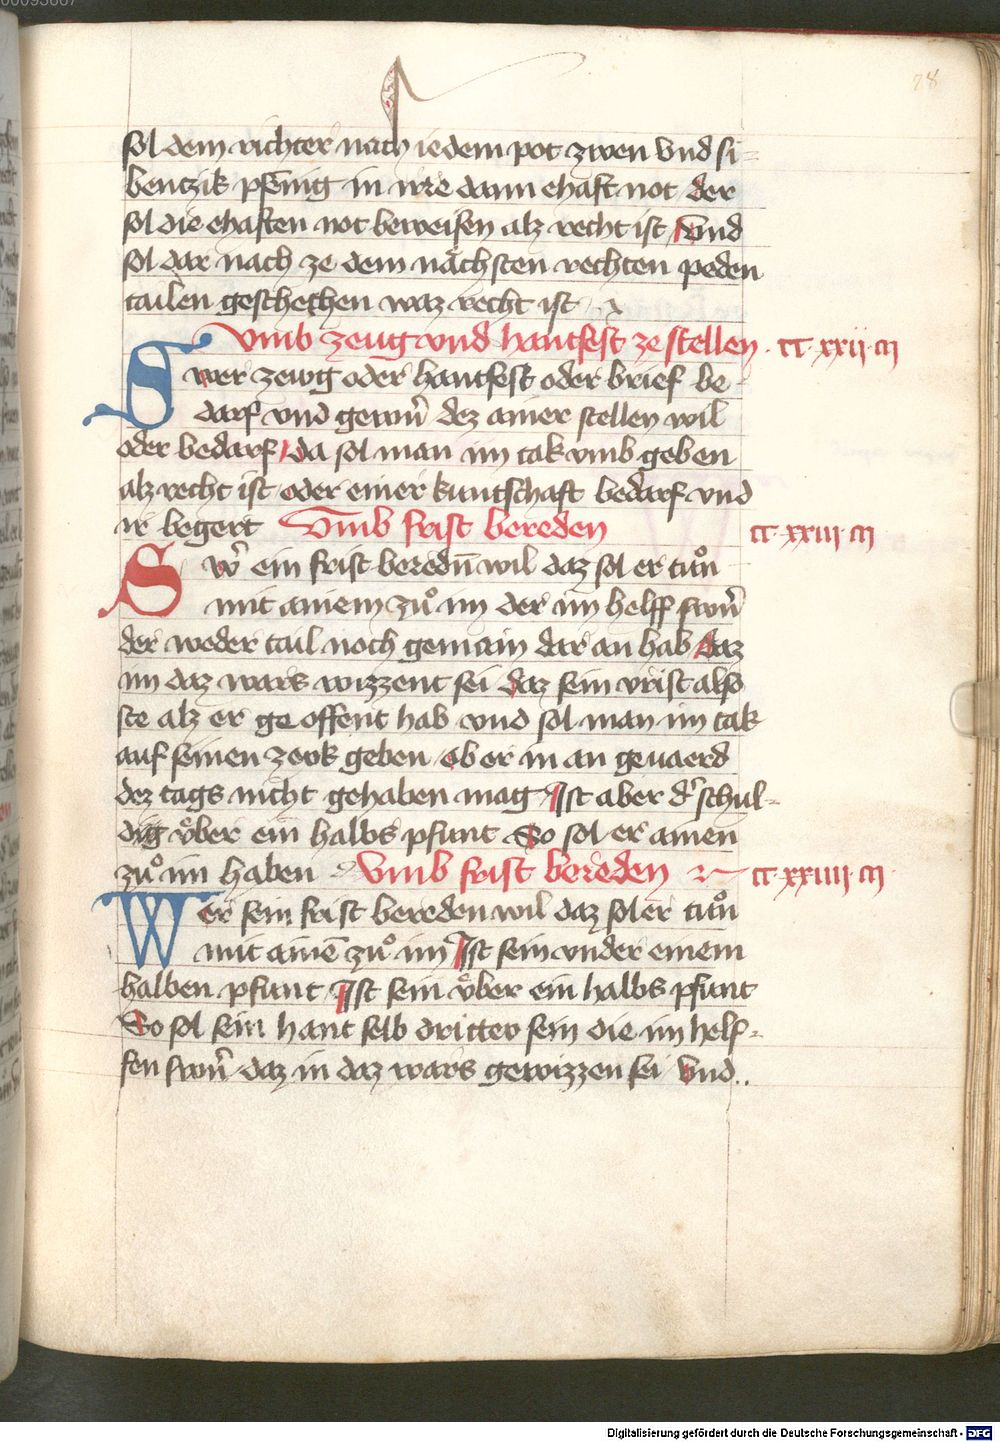 78
sol dem richter nach iedem pot zwen vnd si=
bentzik pfenig in irre dann ehaft not der
sol die ehaften not beweisen alz recht ist Vnd
sol dar nach ze dem nächsten rechten peden
tailen geschehen waz recht ist
Vmb zeug vnd hantfest ze stellen · CC · xxii · cͣ
Swer zewg oder hantfest oder brief be-
darf vnd gewer̄ dez ainer stellen wil
oder bedarf da sol man im tak vmb geben
alz recht ist oder einer kuntschaft bedarf vnd
ir begert Vmb frist bereden CC · xxiii · cͣ
Swer̄ ein frist beredn̄ wil daz sol er tuͦn
mit ainem zuͦ im der im helff swer̄
der weder tail noch gemain dar an hab daz
im daz wars wizzent sei daz sein vrist also
ste alz er ge offent hab vnd sol man im tak
auf seinen zeok geben ob er in an geuaerd
dez tags nicht gehaben mag Ist aber dʼ schul=
dig vͤber ein halbs pfunt So sol er ainen
zuͦ im haben Vmb frist bereden CC · xxiiii · cͣ ·
Wer sein frist bereden wil daz sol er tuͦn
mit ainē zuͦ im Ist sein vnder einem
halben pfunt Ist sein vͤber ein halbs pfunt
So sol sein hant selb dritter sein die im helf=
fen swer̄ daz in daz wars gewizzen sei Vnd..
Digitalisierung gefördert durch die Deutsche Forschungsgemeinschaft - DFG